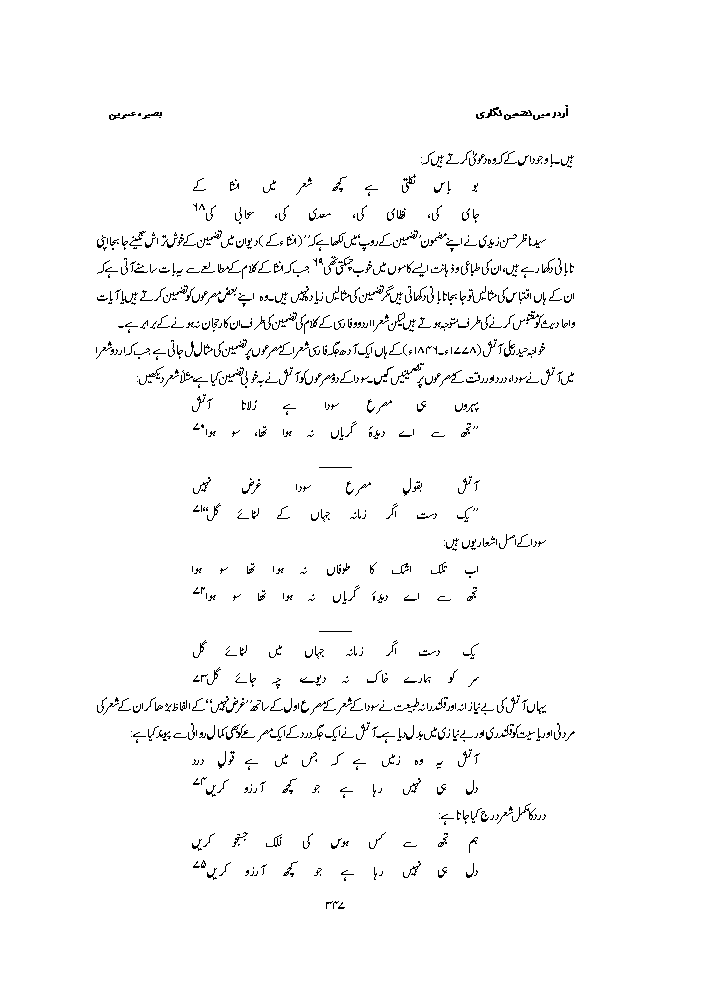 اُردو میں تضمین نگاری
بصیرہ عنبرین
ہیں۔ باوجود اس کے کہ وہ دعویٰ کرتے ہیں کہ:
بو باس نکلتی ہے کچھ شعر میں انشا کے
جامی کی، نظامی کی، سعدی کی، سحابی کی۶۸
سید ناظر حسن زیدی نے اپنے مضمون ’تضمین کے روپ‘ میں لکھا ہے کہ ’’(انشاء کے) دیوان میں تضمین کے خوش تراش نگینے جا بجا اپنی
تابانی دکھا رہے ہیں، ان کی طباعی و ذہانت ایسے کاموں میں خوب چمکتی تھی۶۹ جب کہ انشا کے کلام کے مطالعے سے یہ بات سامنے آتی ہے کہ
ان کے ہاں اقتباس کی مثالیں تو جا بجا تابانی دکھاتی ہیں مگر تضمین کی مثالیں زیادہ نہیں ہیں۔ وہ اپنے بعض مصرعوں کو تضمین کرتے ہیں یا آیات
و احادیث کو مقتبس کرنے کی طرف متوجہ ہوتے ہیں لیکن شعرا اردو و فارسی کے کلام کی تضمین کی طرف ان کا رجحان نہ ہونے کے برابر ہے۔
خواجہ حیدر علی آتش (۱۷۷۸ء۔۱۸۴۶ء) کے ہاں ایک آدھ جگہ فارسی شعرا کے مصرعوں پر تضمین کی مثال مل جاتی ہے جب کہ اردو شعرا
میں آتش نے سودا، درد اور رفت کے مصرعوں پر تضمینیں کیں۔ سودا کے دو مصرعوں کو آتش نے بہ خوبی تضمین کیا ہے مثلاً شعر دیکھیں:
پہروں ہی مصرع سودا ہے رُلاتا آتش
’’تجھ سے اے دیدۂ گریاں نہ ہوا تھا، سو ہوا۷۰
آتش بقولِ مصرع سودا غرض نہیں
’’یک دست اگر زمانہ جہاں کے لٹائے گل‘‘۷۱
سودا کے اصل اشعار یوں ہیں:
اب تلک اشک کا طوفاں نہ ہوا تھا سو ہوا
تجھ سے اے دیدۂ گریاں نہ ہوا تھا سو ہوا۷۲
یک دست اگر زمانہ جہاں میں لٹائے گل
سر کو ہمارے خاک نہ دیوے چہ جائے گل۷۳
یہاں آتش کی بے نیازانہ اور قلندرانہ طبیعت نے سودا کے شعر کے مصرع اول کے ساتھ ’’غرض نہیں‘‘ کے الفاظ بڑھا کر ان کے شعر کی
مردنی اور یاسیت کو قلندری اور بے نیازی میں بدل دیا ہے۔ آتش نے ایک جگہ درد کے ایک مصرعے کو بھی کمال روانی سے پیوند کیا ہے:
آتش یہ وہ زمیں ہے کہ جس میں ہے قولِ درد
دل ہی نہیں رہا ہے جو کچھ آرزو کریں۷۴
درد کا مکمل شعر درج کیا جاتا ہے:
ہم تجھ سے کس ہوس کی فلک جستجو کریں
دل ہی نہیں رہا ہے جو کچھ آرزو کریں۷۵
۳۴۷